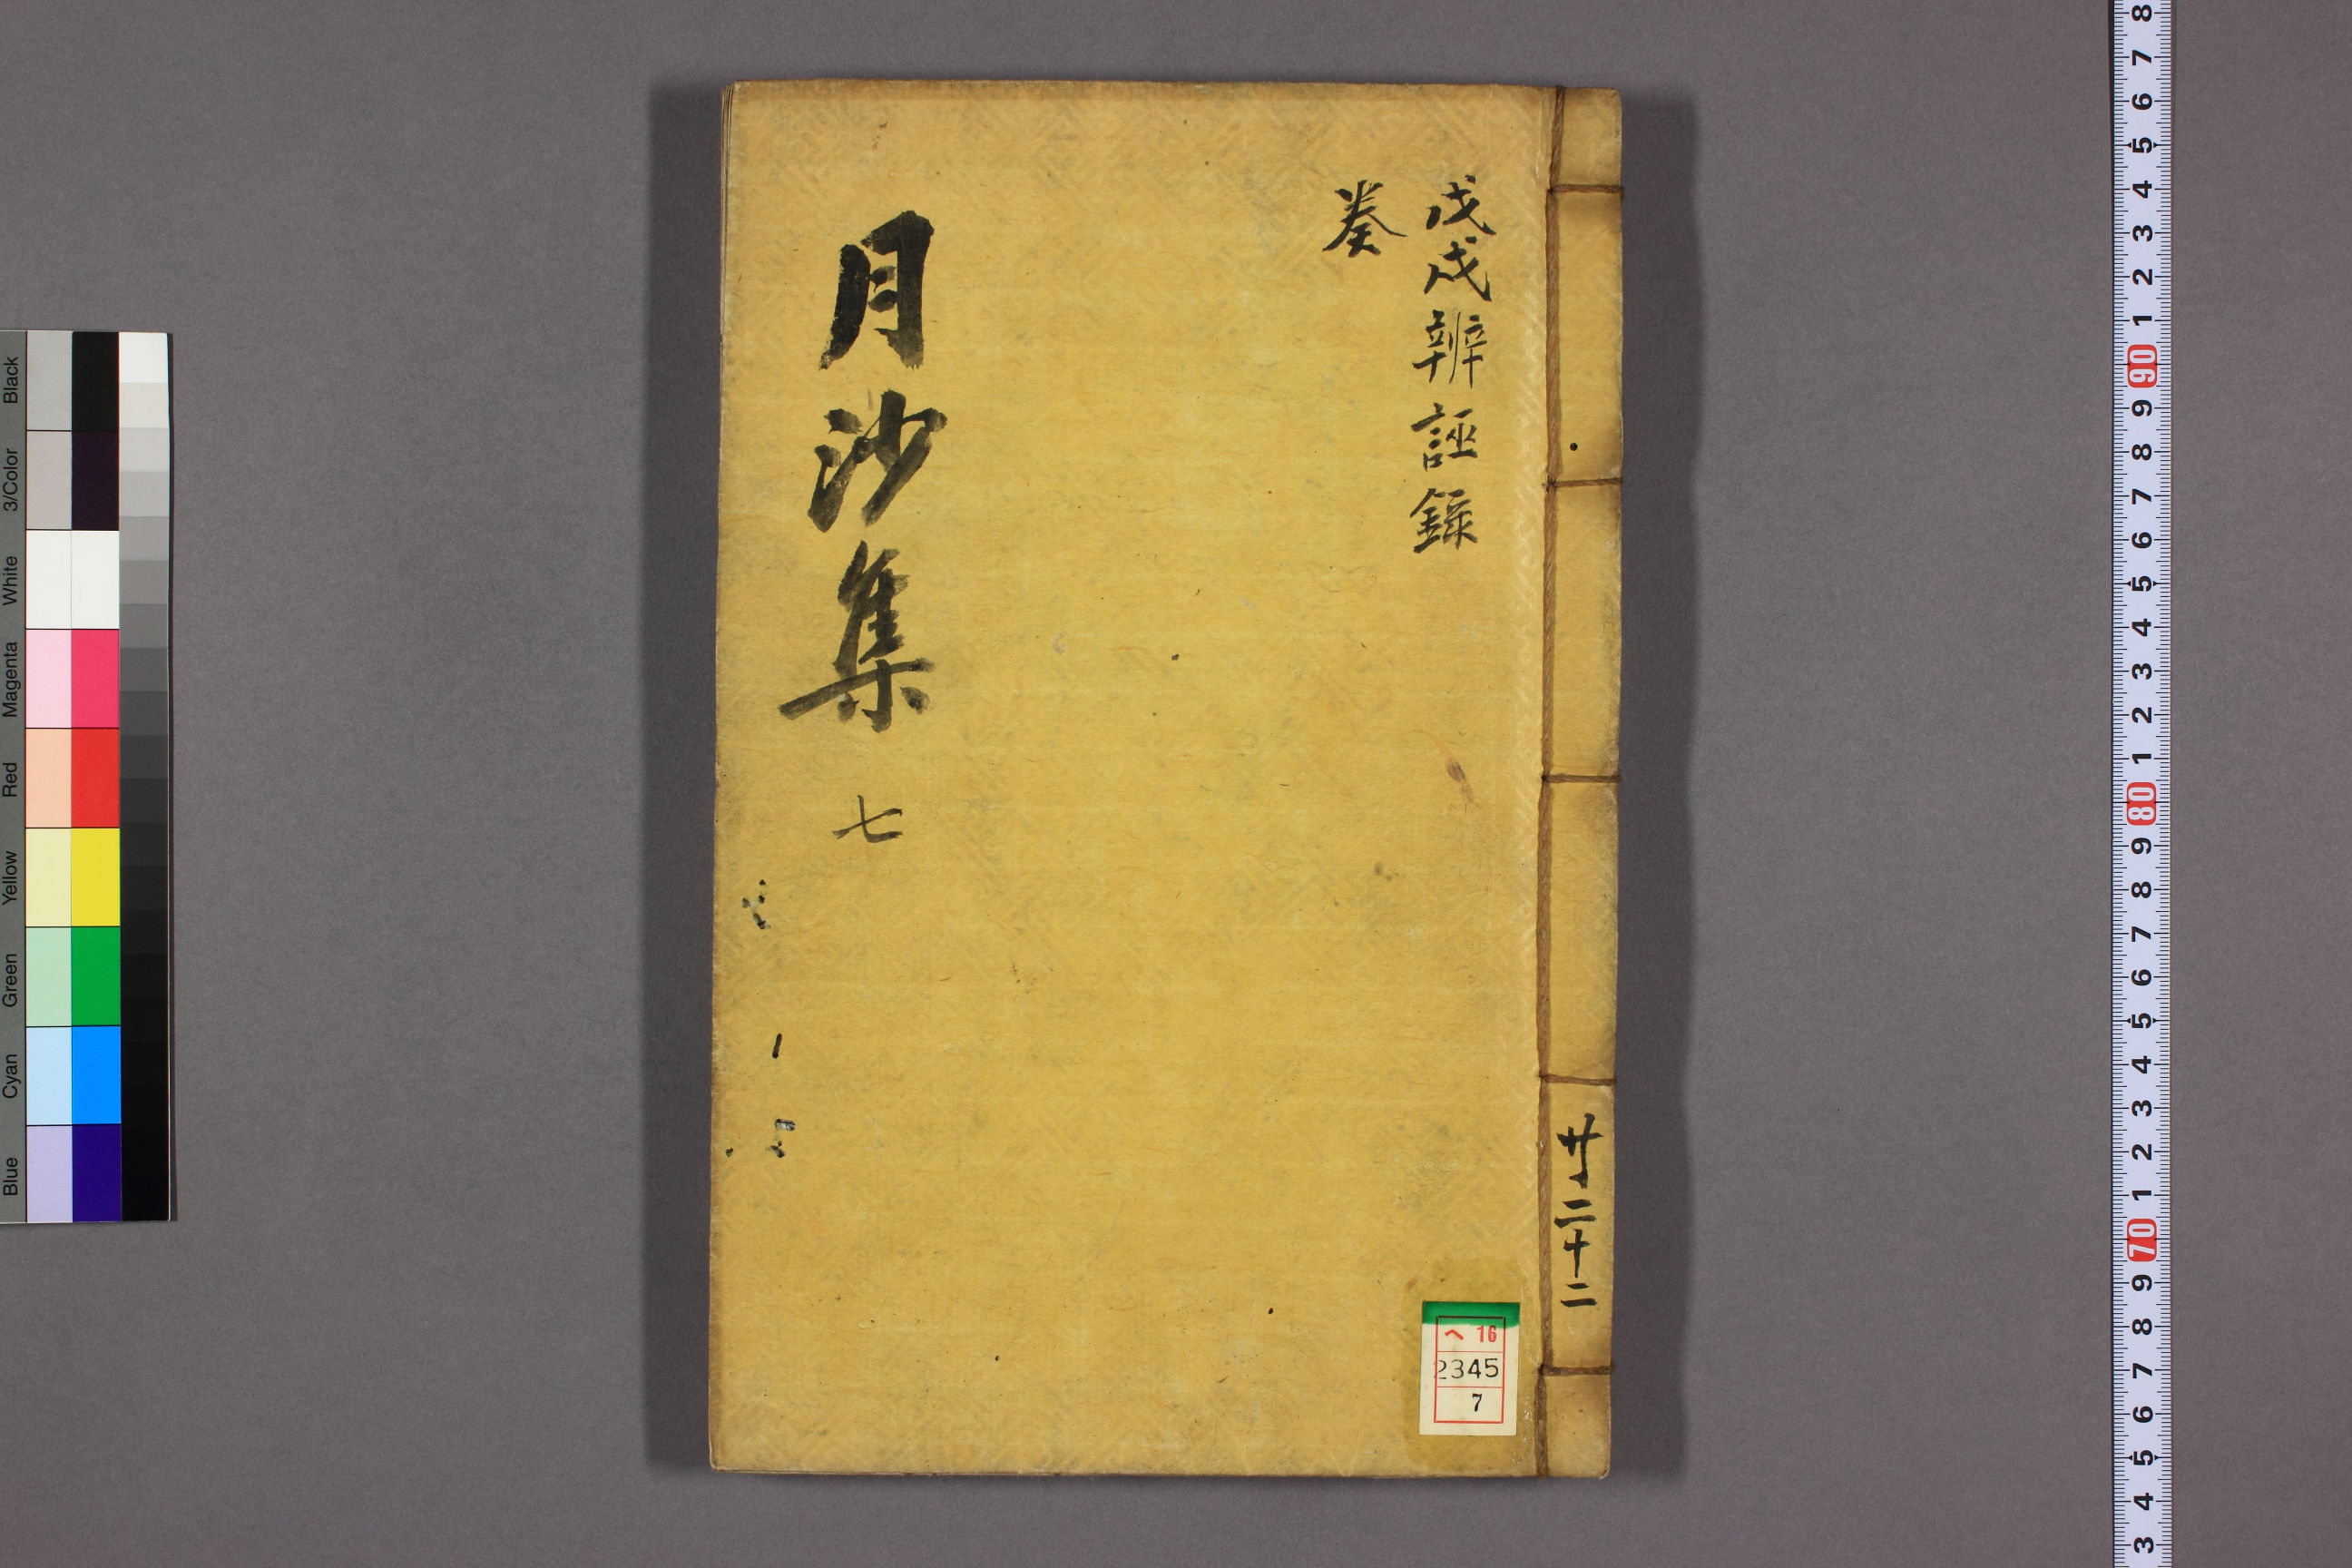 戊戌辨誣錄
奏
月沙集 七
共二十二
ヘ 16
2345
7
Black
3/Color
White
Magenta
Red
Yellow
Green
Cyan
Blue
8
7
6
5
4
3
2
1
90
9
8
7
6
5
4
3
2
1
80
9
8
7
6
5
4
3
2
1
70
9
8
7
6
5
4
3